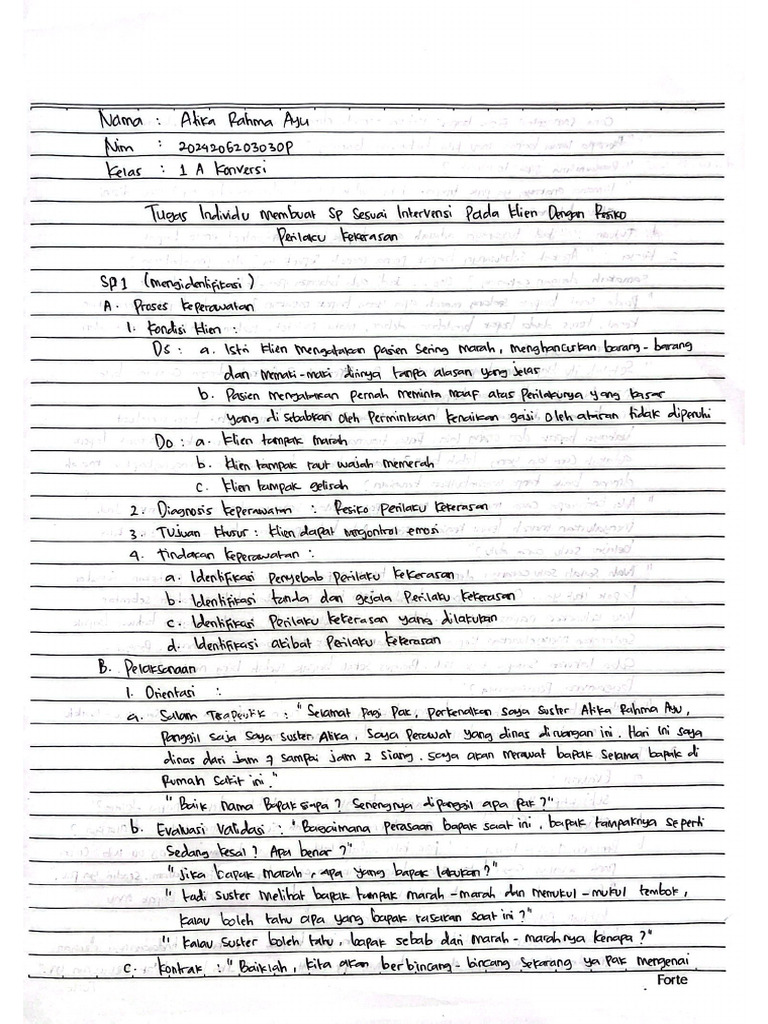 Nama : Atika Rahma Ayu
Nim : 2024206203030P
Kelas : 1 A Konversi
Tugas Individu Membuat SP Sesuai Intervensi Pada Klien Dengan Resiko
Perilaku Kekerasan
SP 1 (mengidentifikasi)
A. Proses Keperawatan
1. Kondisi Klien :
DS : a. Istri Klien mengatakan pasien Sering Marah, menghancurkan barang-barang
dan memaki-maki dirinya tanpa alasan yang jelas
b. Pasien mengatakan pernah meminta maaf atas Perilakunya yang kasar
yang di sebabkan oleh Permintaan kenaikan gaji oleh atasan tidak dipenuhi
DO : a. Klien tampak marah
b. Klien tampak raut wajah memerah
c. Klien tampak gelisah
2. Diagnosis keperawatan : Resiko Perilaku Kekerasan
3. Tujuan Khusus : Klien dapat mengontrol emosi
4. Tindakan Keperawatan :
a. Identifikasi Penyebab Perilaku Kekerasan
b. Identifikasi tanda dan gejala Perilaku Kekerasan
c. Identifikasi Perilaku kekerasan yang dilakukan
d. Identifikasi akibat Perilaku Kekerasan
B. Pelaksanaan
1. Orientasi :
a. Salam Terapeutik : "Selamat Pagi Pak, Perkenalkan Saya Suster Atika Rahma Ayu,
Panggil saja Saya Suster Atika, Saya Perawat yang dinas diruangan ini. Hari ini saya
dinas dari jam 7 sampai jam 2 siang. saya akan merawat bapak selama bapak di
Rumah Sakit ini."
"Baik nama Bapak siapa? Senengnya dipanggil apa Pak?"
b. Evaluasi Validasi : "Bagaimana Perasaan bapak saat ini, bapak tampaknya seperti
Sedang kesal? Apa benar?"
"Jika bapak marah, apa yang bapak lakukan?"
"tadi suster melihat bapak tampak marah-marah dan memukul-mukul tembok,
kalau boleh tahu apa yang bapak rasakan saat ini?"
"kalau Suster boleh tahu, bapak sebab dari marah-marahnya kenapa?"
c. Kontrak : "Baiklah, kita akan berbincang-bincang Sekarang ya Pak mengenai
Forte